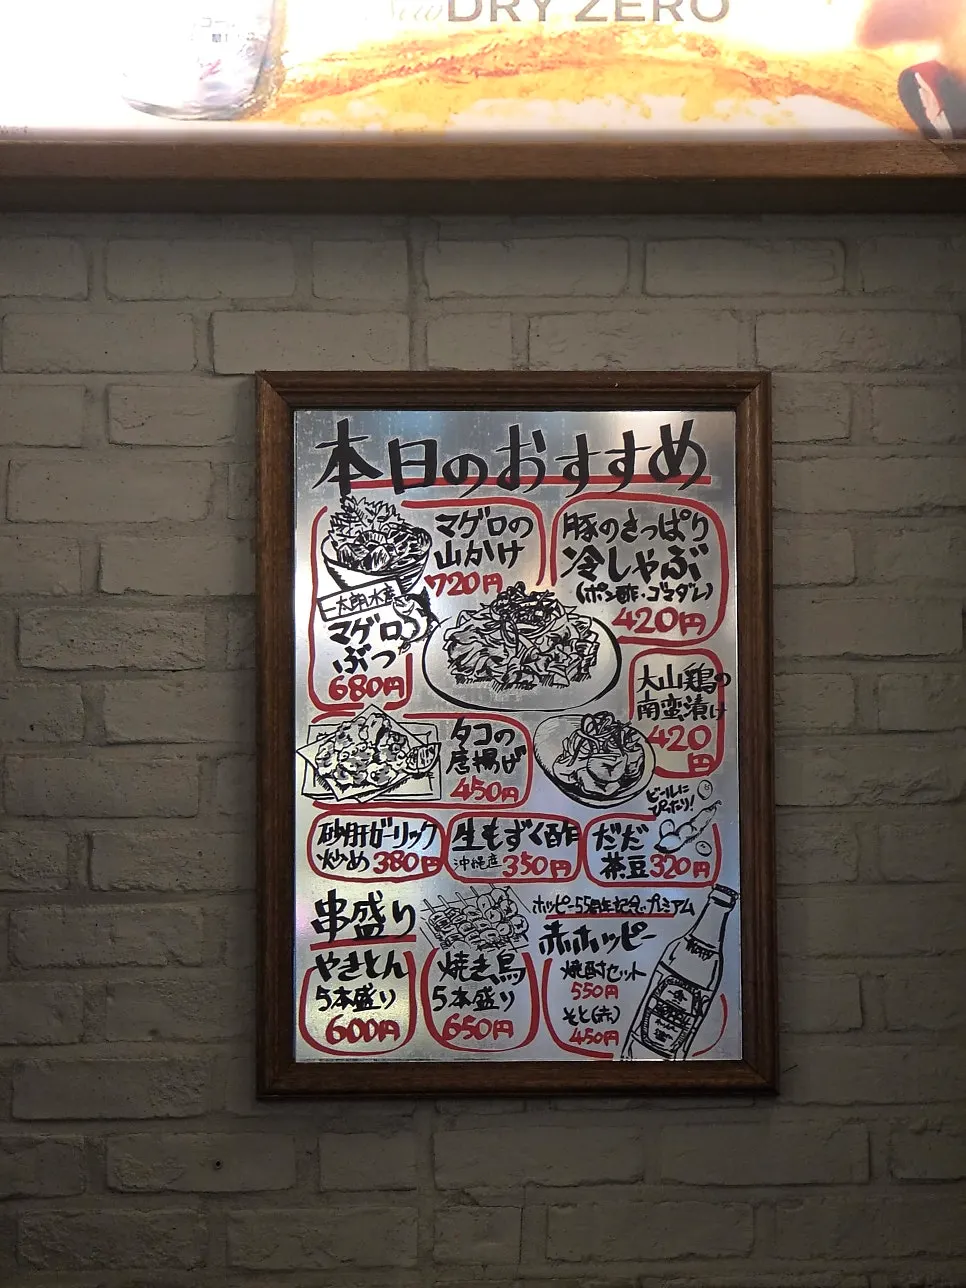 New DRY ZERO
本日のおすすめ
マグロの
山かけ
720円
一太郎水産
マグロ
ぶつ
680円
豚のさっぱり
冷しゃぶ
(ポン酢・ゴマダレ)
420円
大山鶏の
南蛮漬け
420
円
タコの
唐揚げ
450円
ビールに
ぴったり!
砂肝ガーリック
炒め 380円
生もずく酢
沖縄産 350円
だだ
茶豆 320円
串盛り
やきとん
5本盛り
600円
焼き鳥
5本盛り
650円
ホッピー55周年記念プレミアム
赤ホッピー
焼酎セット
550円
そと(赤)
450円